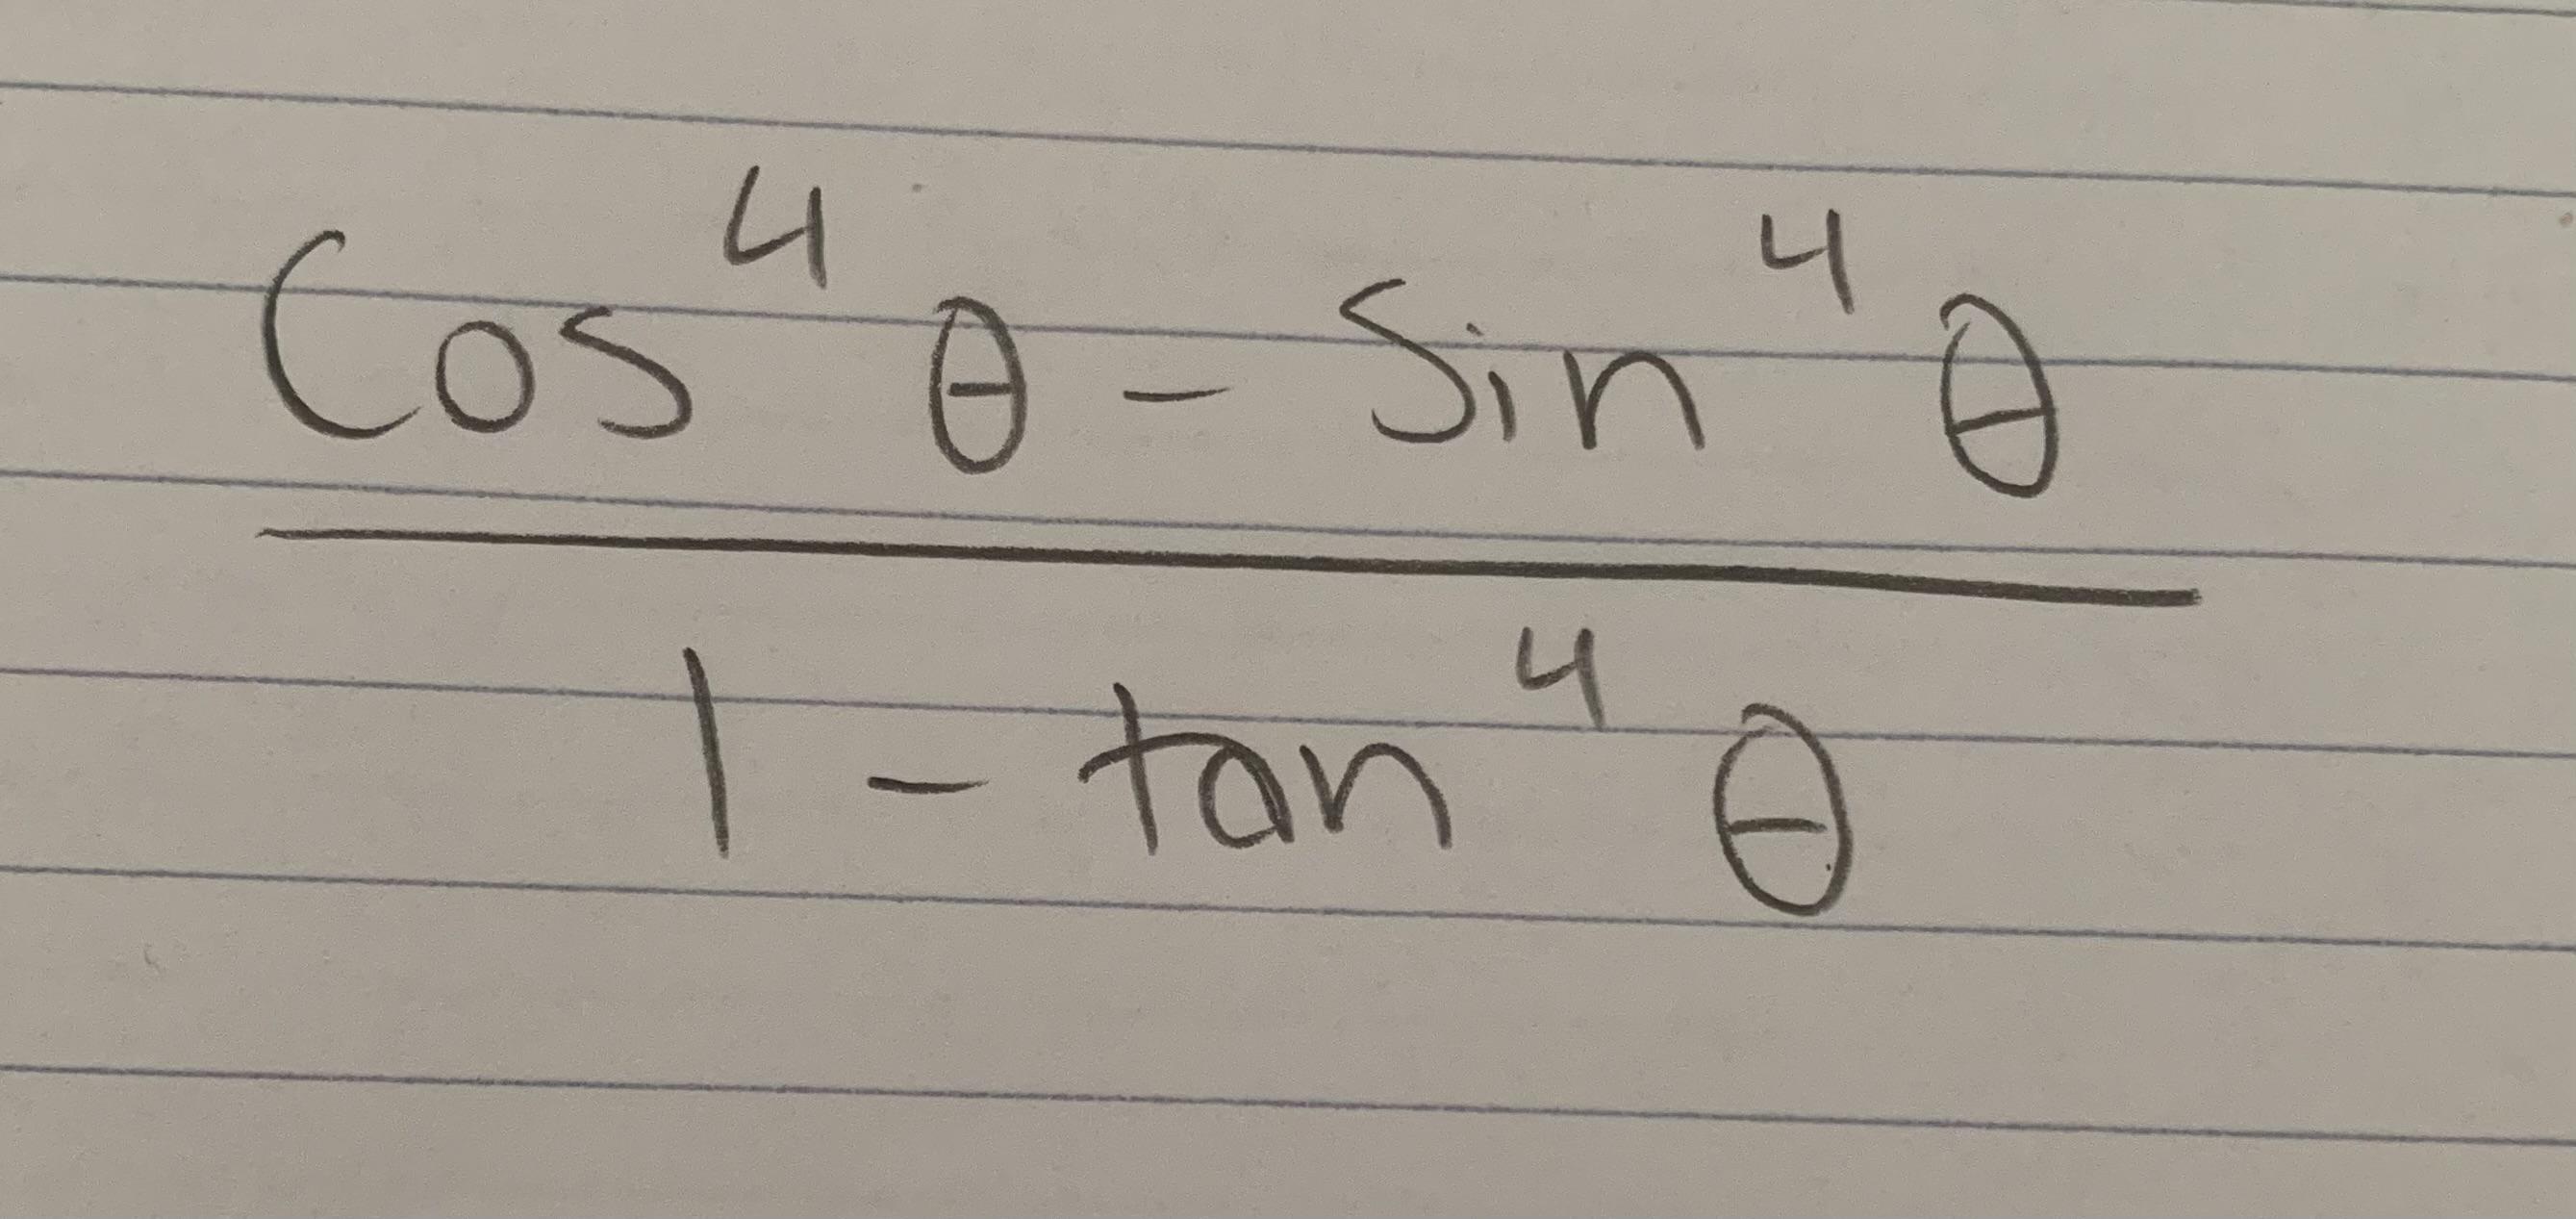 Cos⁴ θ - Sin⁴ θ
1 - tan⁴ θ